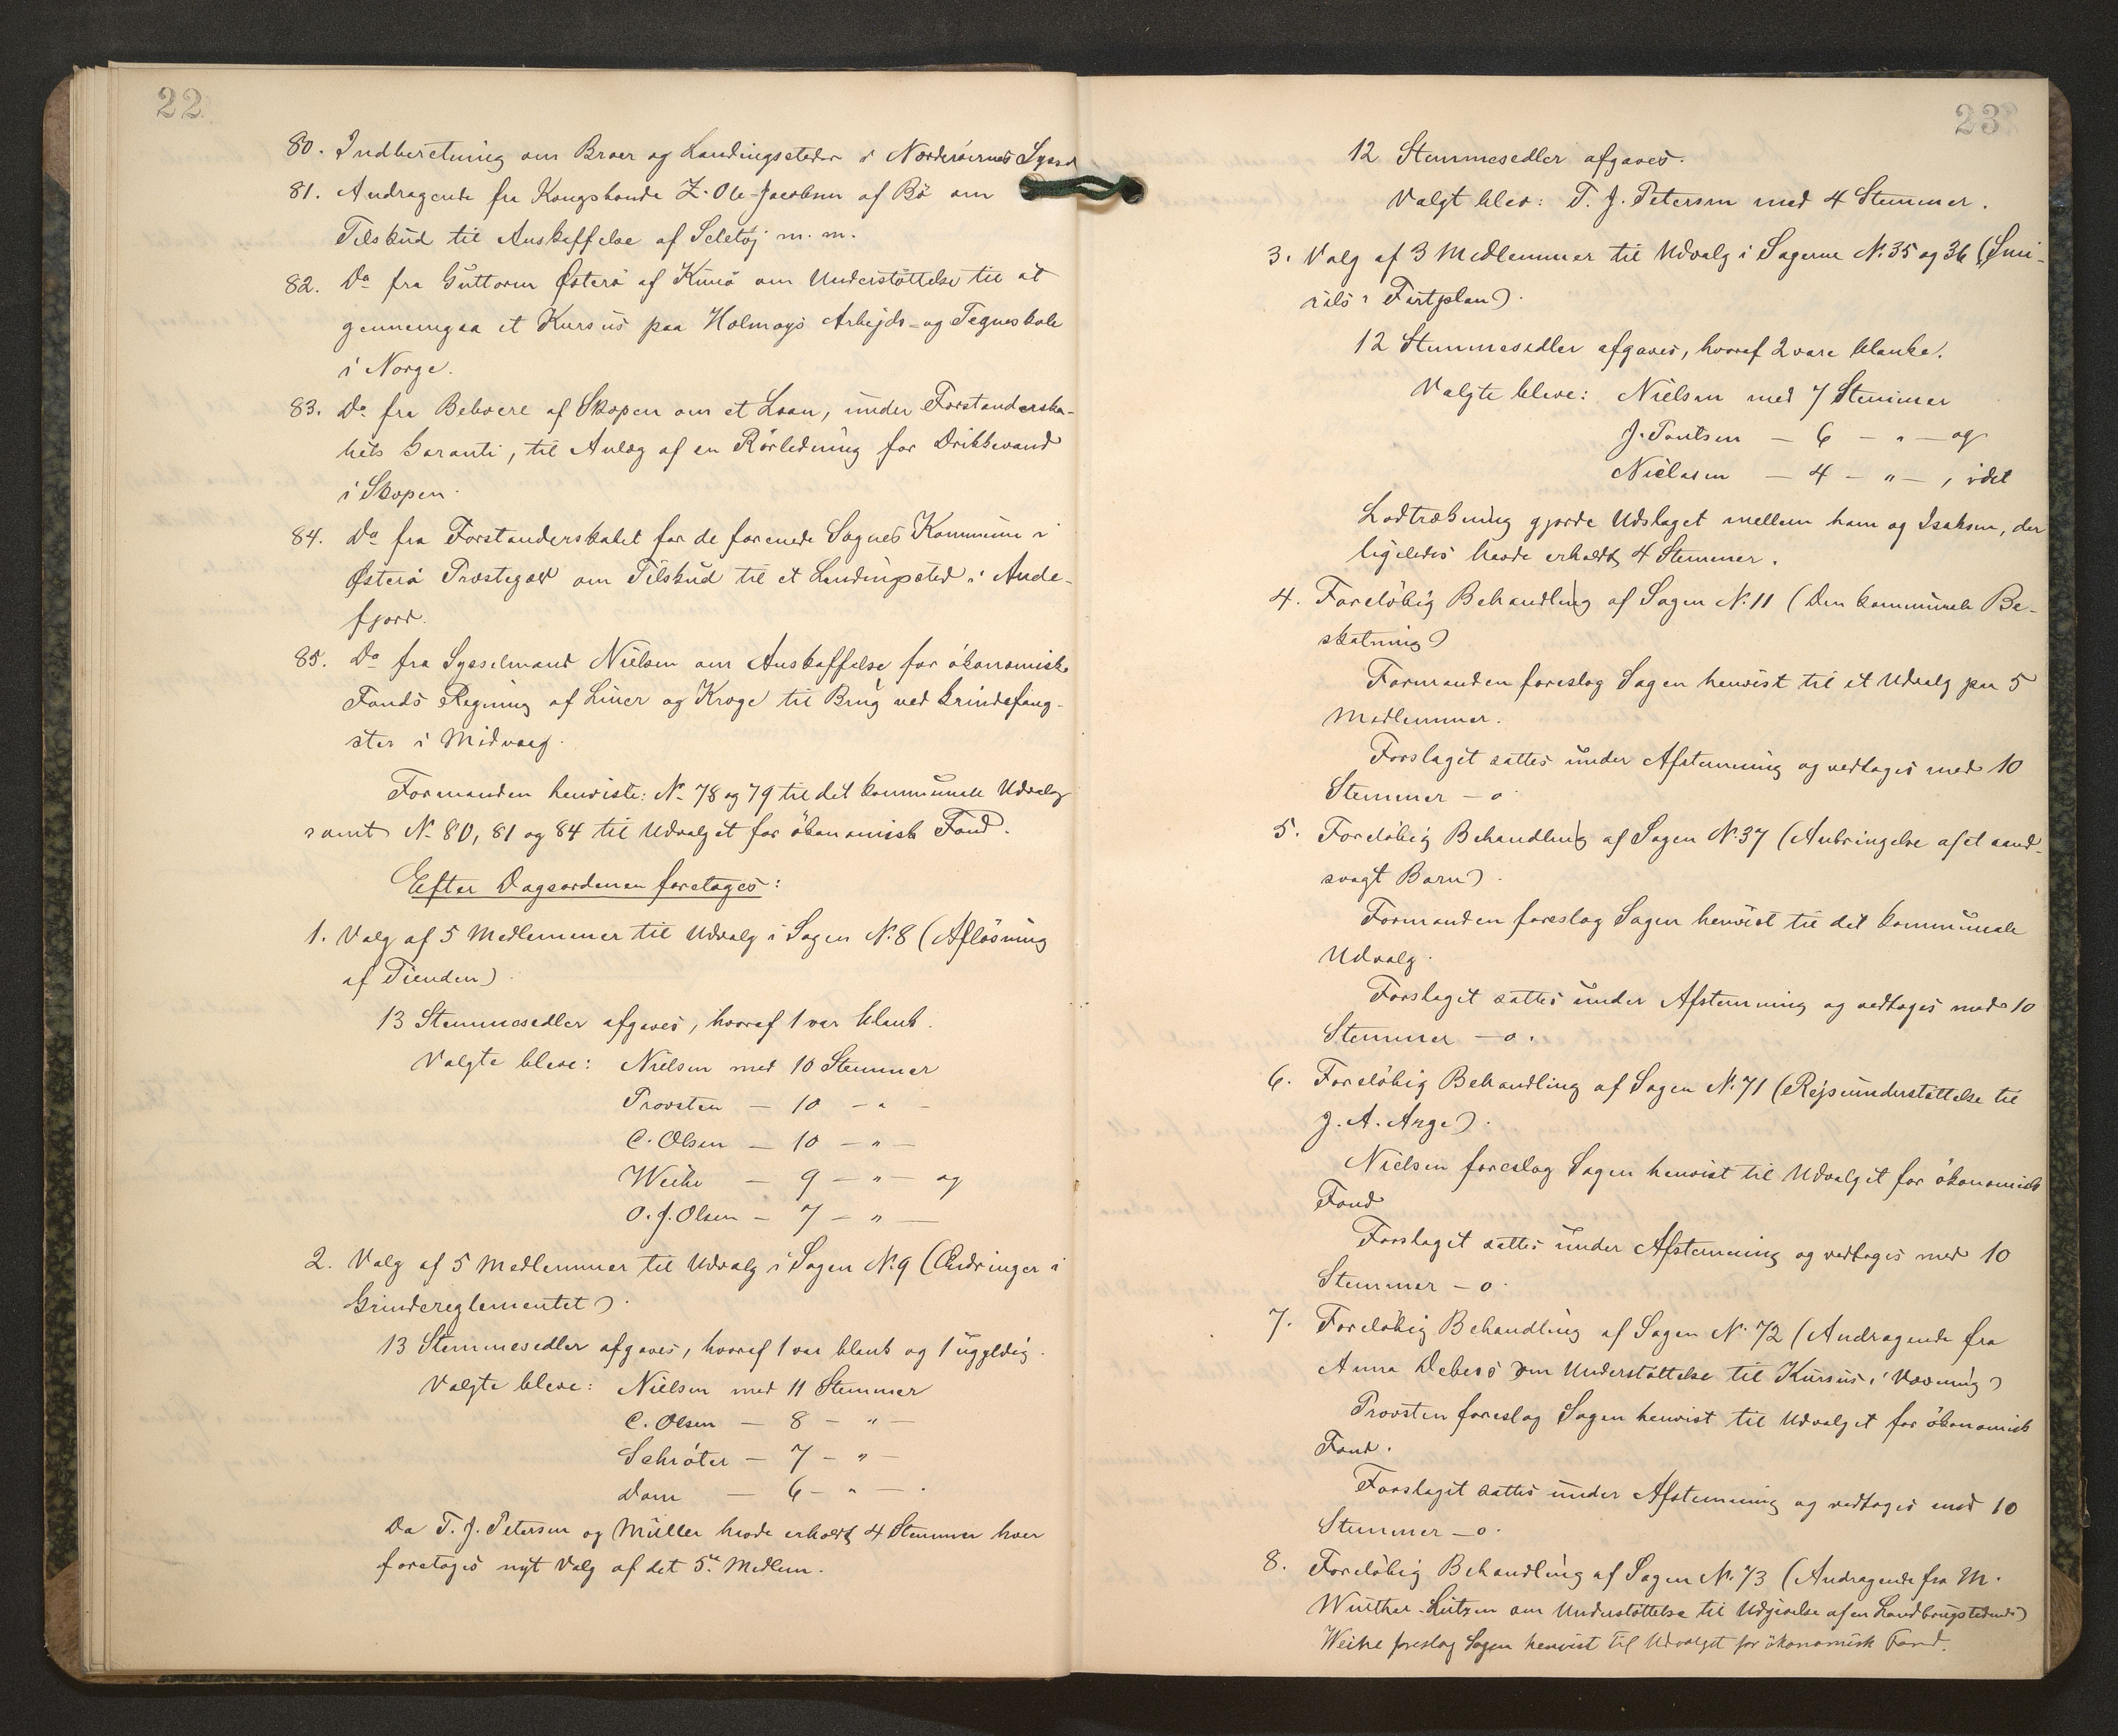 22
80. Indberetning om Broer og Landingssteder i Norderöernes Syssel
81. Andragende fra Kongsbonde Z. Ole-Jacobsen af Bö om
Tilskud til Anskaffelse af Seletöj m. m.
82. Do fra Guttorm Østerö af Kunö om Understöttelse til at
gennemgaa et Kursus paa Holmøys Arbejds- og Tegneskole
i Norge.
83. Do fra Beboere af Skopen om et Laan, under Forstanderska-
bets Garanti, til Anlæg af en Rörledning for Drikkevand
i Skopen.
84. Do fra Forstanderskabet for de forenede Sognes Kommune i
Østerö Præstegæld om Tilskud til et Landingssted i Ande-
fjord.
85. Do fra Sysselmand Nielsen om Anskaffelse for ökonomisk
Fonds Regning af Liner og Kroge til Brug ved Grindefang-
ster i Midvaag.
Formanden henviste: No 78 og 79 til det kommunale Udvalg
samt No 80, 81 og 84 til Udvalget for ökonomisk Fond.
Efter Dagsordenen foretoges:
1. Valg af 5 Medlemmer til Udvalg i Sagen No 8 (Aflösning
af Tienden).
13 Stemmesedler afgaves, hvoraf 1 var blank.
Valgte bleve: Nielsen med 10 Stemmer
Provsten — 10 — " —
C. Olsen — 10 — " —
Weihe — 9 — " — og
O. J. Olsen — 7 — " —
2. Valg af 5 Medlemmer til Udvalg i Sagen No 9 (Ændringer i
Grindereglementet).
13 Stemmesedler afgaves, hvoraf 1 var blank og 1 ugyldig.
Valgte bleve: Nielsen med 11 Stemmer
C. Olsen — 8 — " —
Schröter — 7 — " —
Dam — 6 — " — .
Da T. J. Petersen og Müller havde erholdt 4 Stemmer hver
foretoges nyt Valg af det 5te Medlem.
23
12 Stemmesedler afgaves.
Valgt blev: T. J. Petersen med 4 Stemmer.
3. Valg af 3 Medlemmer til Udvalg i Sagerne No 35 og 36 (Smi-
rils Fartplan).
12 Stemmesedler afgaves, hvoraf 2 vare blanke.
Valgte bleve: Nielsen med 7 Stemmer
J. Poulsen — 6 — " — og
Niclasen — 4 — " — , idet
Lodtrækning gjorde Udslaget mellem ham og Isaksen, der
ligeledes havde erholdt 4 Stemmer.
4. Forelöbig Behandling af Sagen No 11 (Den kommunale Be-
skatning)
Formanden foreslog Sagen henvist til et Udvalg paa 5
Medlemmer.
Forslaget sattes under Afstemning og vedtoges med 10
Stemmer — o.
5. Forelöbig Behandling af Sagen No 37 (Anbringelse af et aand-
svagt Barn).
Formanden foreslog Sagen henvist til det kommunale
Udvalg.
Forslaget sattes under Afstemning og vedtoges med 10
Stemmer — o.
6. Forelöbig Behandling af Sagen No 71 (Rejseunderstöttelse til
J. A. Arge).
Nielsen foreslog Sagen henvist til Udvalget for ökonomisk
Fond
Forslaget sattes under Afstemning og vedtoges med 10
Stemmer — o.
7. Forelöbig Behandling af Sagen No 72 (Andragende fra
Anna Debess om Understöttelse til Kursus i Vævning)
Provsten foreslog Sagen henvist til Udvalget for ökonomisk
Fond.
Forslaget sattes under Afstemning og vedtoges med 10
Stemmer — o.
8. Forelöbig Behandling af Sagen No 73 (Andragende fra M.
Winther-Lützen om Understöttelse til Udgivelse af en Landbrugstidende)
Weihe foreslog Sagen henvist til Udvalget for ökonomisk Fond.